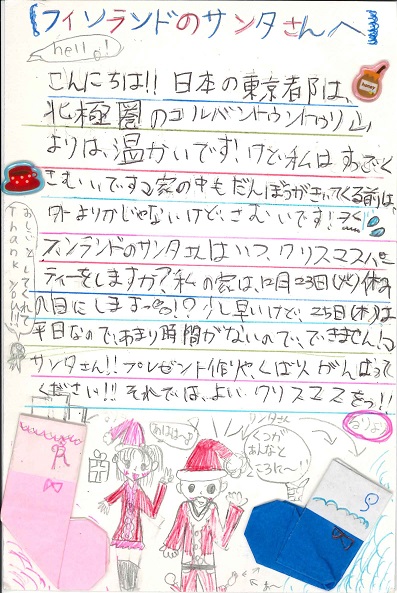 フィンランドのサンタさんへ
hello!
honey
こんにちは!! 日本の東京都は、
北極圏のコルバントゥントゥリ山
よりは、温かいです!けど私はすっごく
さむいです♪家の中もだんぼうがきいてくる前は、
外よりかじゃないけど、さむいです!
フィンランドのサンタさんはいつ、クリスマスパー
ティーをしますか?私の家は、12月23日(火)休み
の日にします
少し早いけど、25日(木)は
平日なので、あまり時間がないので、できません!
サンタさん!!プレゼント作りやくばり がんばって
ください!!! それでは、よい、クリスマスをっ!!
Thank you!!
サンタさん
くつが
あんなと
ころに〜!!